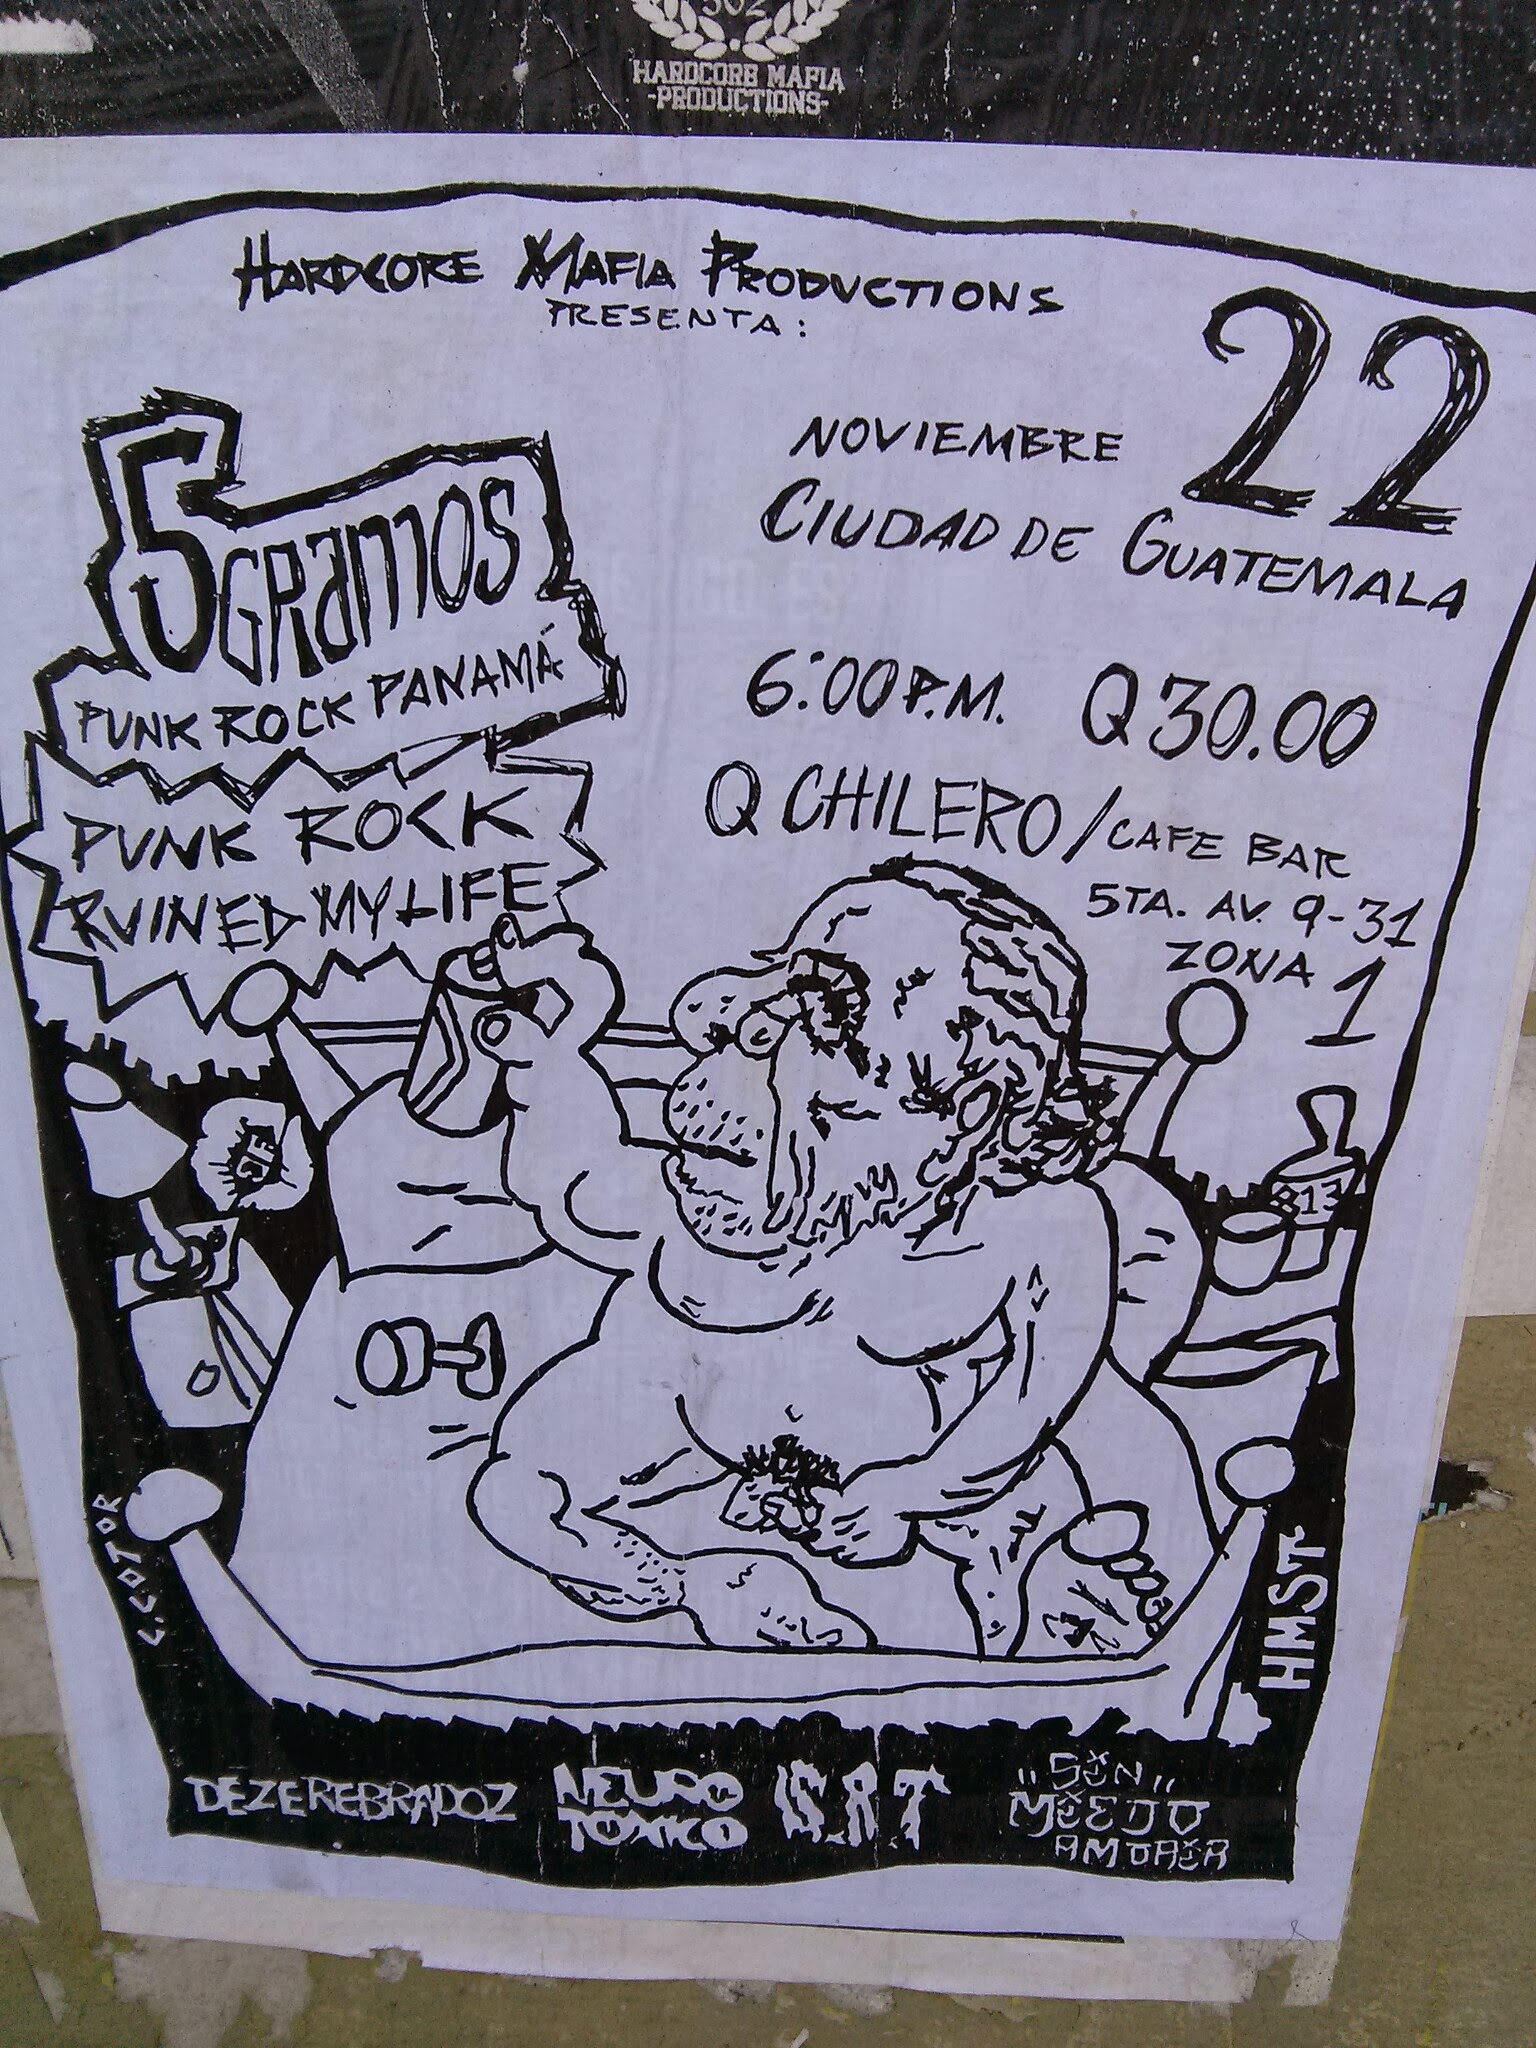 HARDCORE MAFIA
-PRODUCTIONS-
HARDCORE MAFIA PRODUCTIONS
PRESENTA:
22
NOVIEMBRE
CIUDAD DE GUATEMALA
5 GRAMOS
PUNK ROCK PANAMÁ
6:00 P.M. Q30.00
PUNK ROCK
RUINED MY LIFE
Q CHILERO / CAFE BAR
5TA. AV. 9-31
ZONA 1
813
L. COTOR
HMST
DEZEREBRADOZ
NEURO
TOXICO
"SIN"
MIEDO
AMORIR